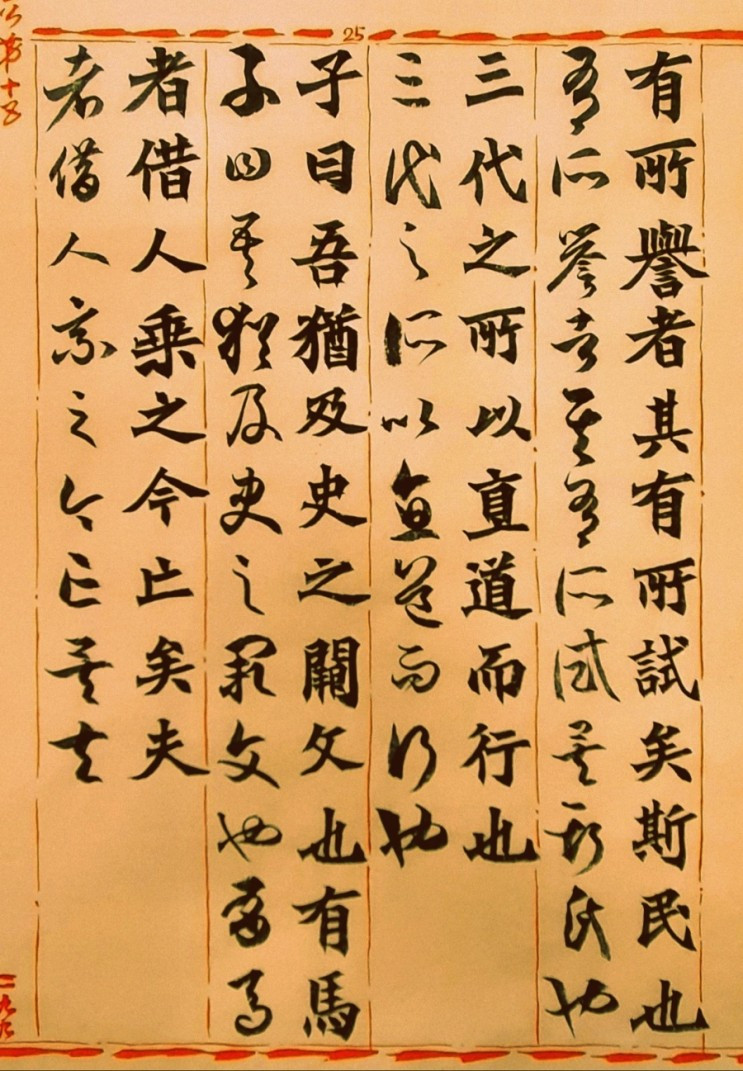 25
有所譽者其有所試矣斯民也
有所譽者其有所試矣斯民也
三代之所以直道而行也
三代之所以直道而行也
子曰吾猶及史之闕文也有馬
子曰吾猶及史之闕文也有馬
者借人乘之今亡矣夫
者借人乘之今亡矣夫
公第十五